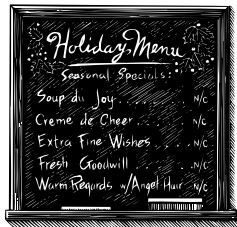 Holiday Menu
Seasonal Specials:
Soup du Joy....... N/C
Creme de Cheer... N/C
Extra Fine Wishes .... N/C
Fresh Goodwill ..... N/C
Warm Regards w/Angel Hair N/C